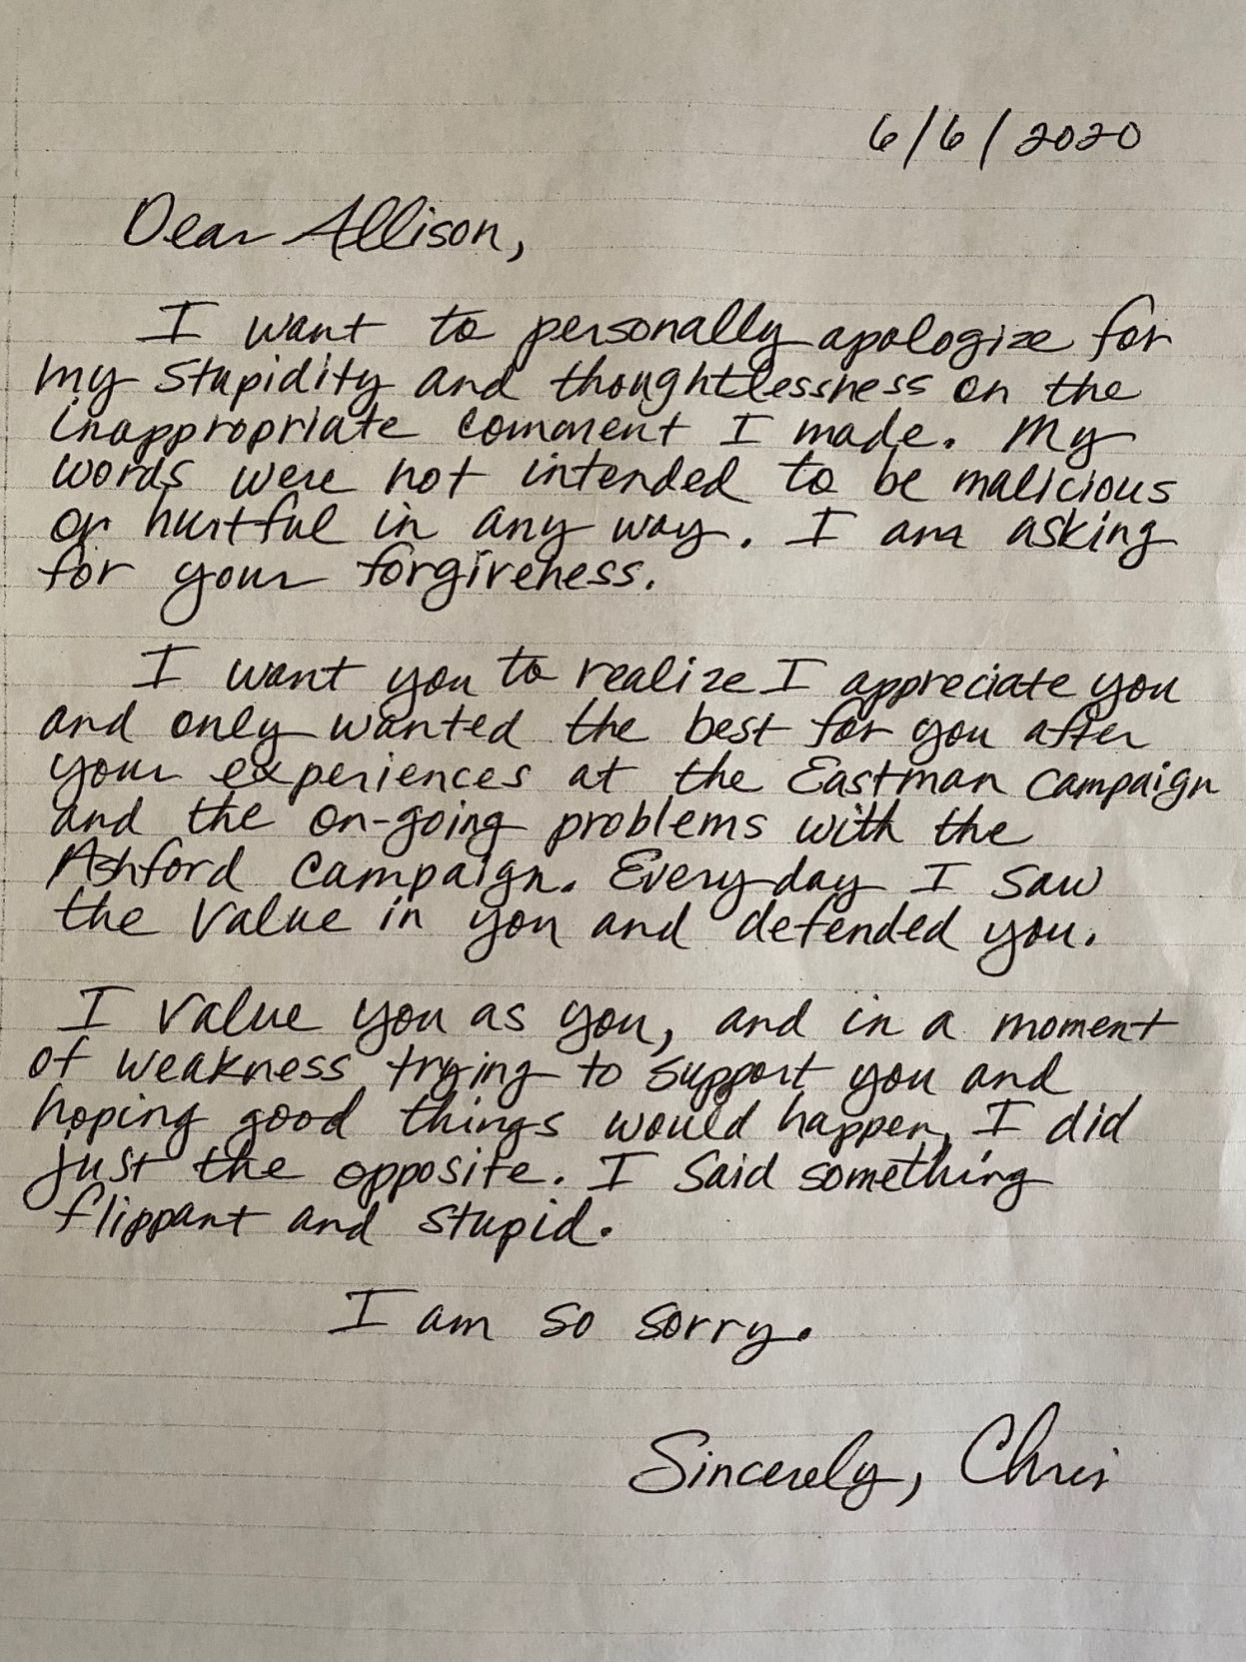 6/6/2020
Dear Allison,
I want to personally apologize for
my stupidity and thoughtlessness on the
inappropriate comment I made. My
words were not intended to be malicious
or hurtful in any way. I am asking
for your forgiveness.
I want you to realize I appreciate you
and only wanted the best for you after
your experiences at the Eastman campaign
and the on-going problems with the
Ashford campaign. Everyday I saw
the value in you and defended you.
I value you as you, and in a moment
of weakness trying to support you and
hoping good things would happen, I did
just the opposite. I said something
flippant and stupid.
I am so sorry.
Sincerely, Chris